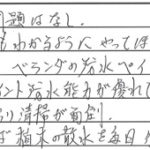 問題はなし.
もわかるようにやってほ
ベランダの散水ペイ
イント散水能力が優れて
り清掃が面倒.
ば粗末の散水を毎日